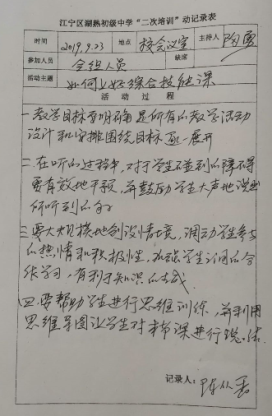 江宁区湖熟初级中学“二次培训”活动记录表
时间 2019.9.23 地点 校会议室 主持人 陶勇
参加人员 全组人员 缺席
活动主题 如何上好综合技能课
活动过程
一.教学目标要明确,是所有的教学活动
设计和安排围绕目标逐一展开
二.在听的过程中,对于学生碰到的障碍
要有效地干预,并鼓励学生大声地说出
所听到的内容
三.要大规模地创设情境,调动学生参与
的热情和积极性,加强学生之间的合
作学习,有利于知识的生成
四.要帮助学生进行思维训练,并利用
思维导图让学生对本节课进行总结
记录人:陈从香